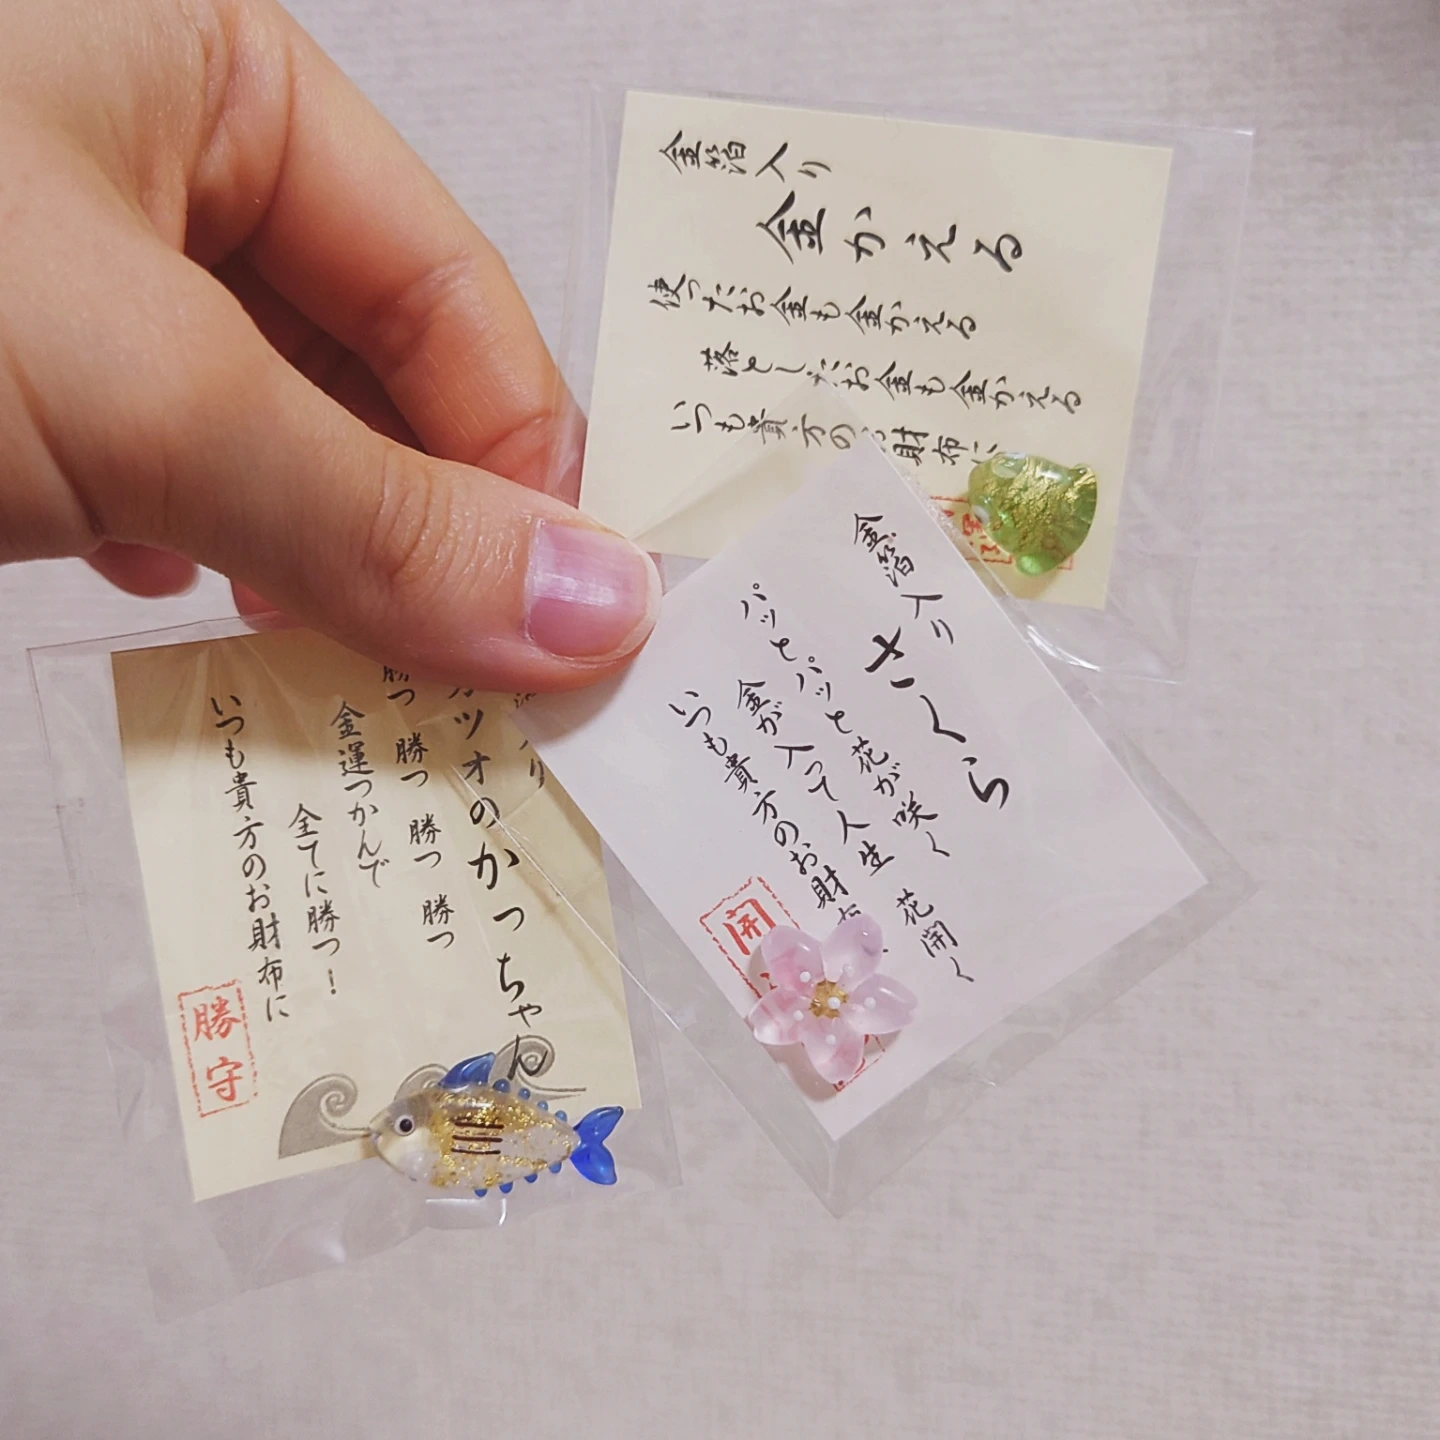 金箔入り
金かえる
使ったお金も金かえる
落としたお金も金かえる
いつも貴方のお財布に
金箔入り
さくら
パッとパッと花が咲く 花開く
金が入って人生
いつも貴方のお財布
開
入り
カツオのかっちゃん
勝つ 勝つ 勝つ 勝つ
金運つかんで
全てに勝つ!
いつも貴方のお財布に
勝守